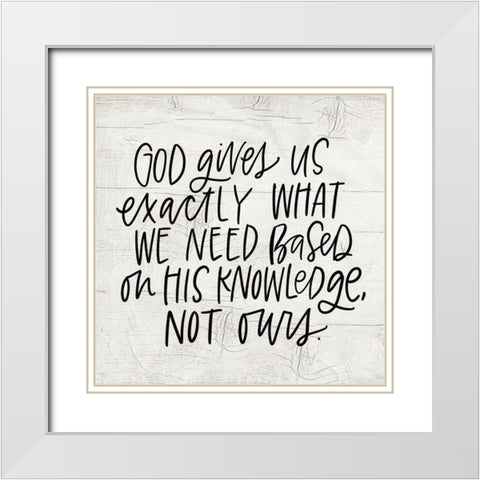 GOD gives US
exactly WHAT
WE NEED Based
on HIS KNOWLedge,
NOT ours.